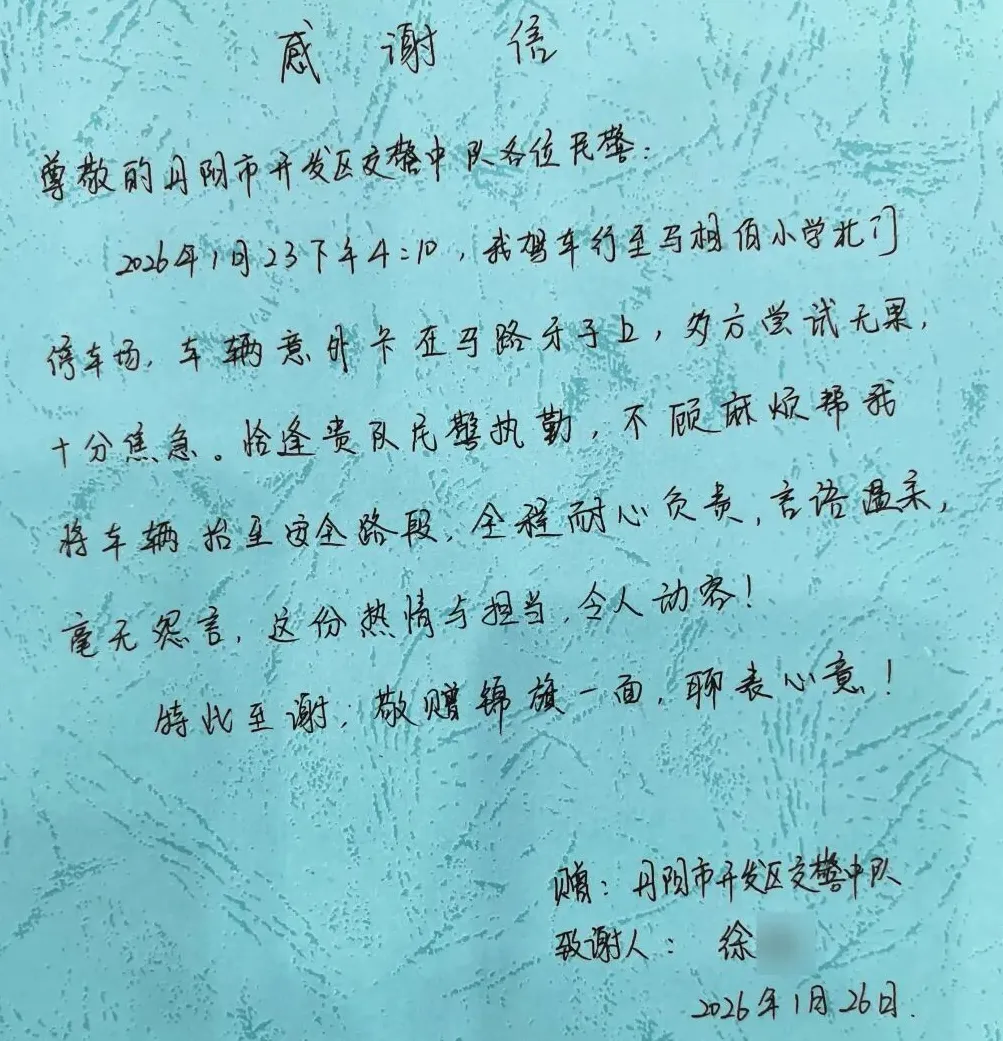 感谢信
尊敬的丹阳市开发区交警中队各位民警：
2026年1月23下午4:10，我驾车行至马相伯小学北门
停车场，车辆意外卡在马路牙子上，多方尝试无果，
十分焦急。恰逢贵队民警执勤，不顾麻烦帮我
将车辆抬至安全路段，全程耐心负责，言语温柔，
毫无怨言，这份热情与担当，令人动容！
特此至谢，敬赠锦旗一面，聊表心意！
赠：丹阳市开发区交警中队
致谢人：徐
2026年1月26日.